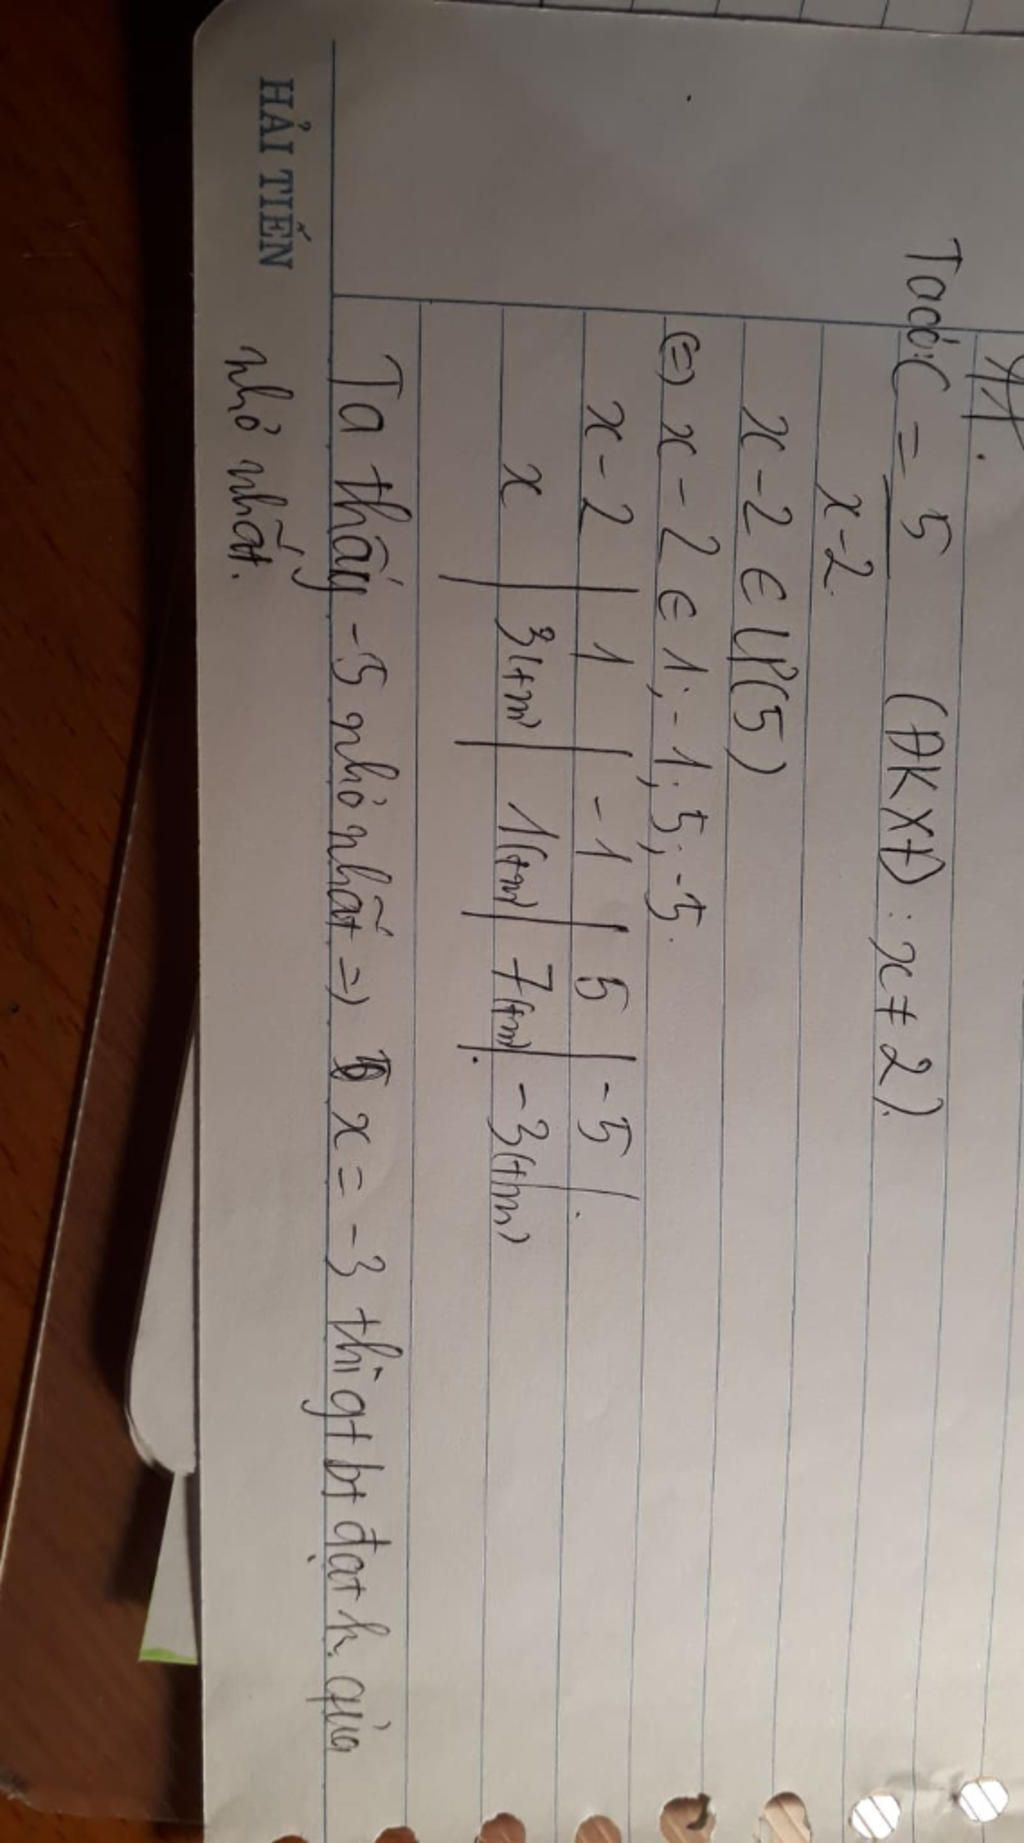 Ta có: C = 5 (ĐKXĐ): x ≠ 2).
x-2.
x-2 ∈ Ư(5)
(=) x - 2 ∈ 1; -1; 5; -5.
x-2 | 1 | -1 | 5 | -5 | .
x | 3(tm) | 1(tm) | 7(tm) | -3(tm)
Ta thấy -5 nhỏ nhất =) x = -3 thì gt bt đạt k. quả
HẢI TIẾN nhỏ nhất.